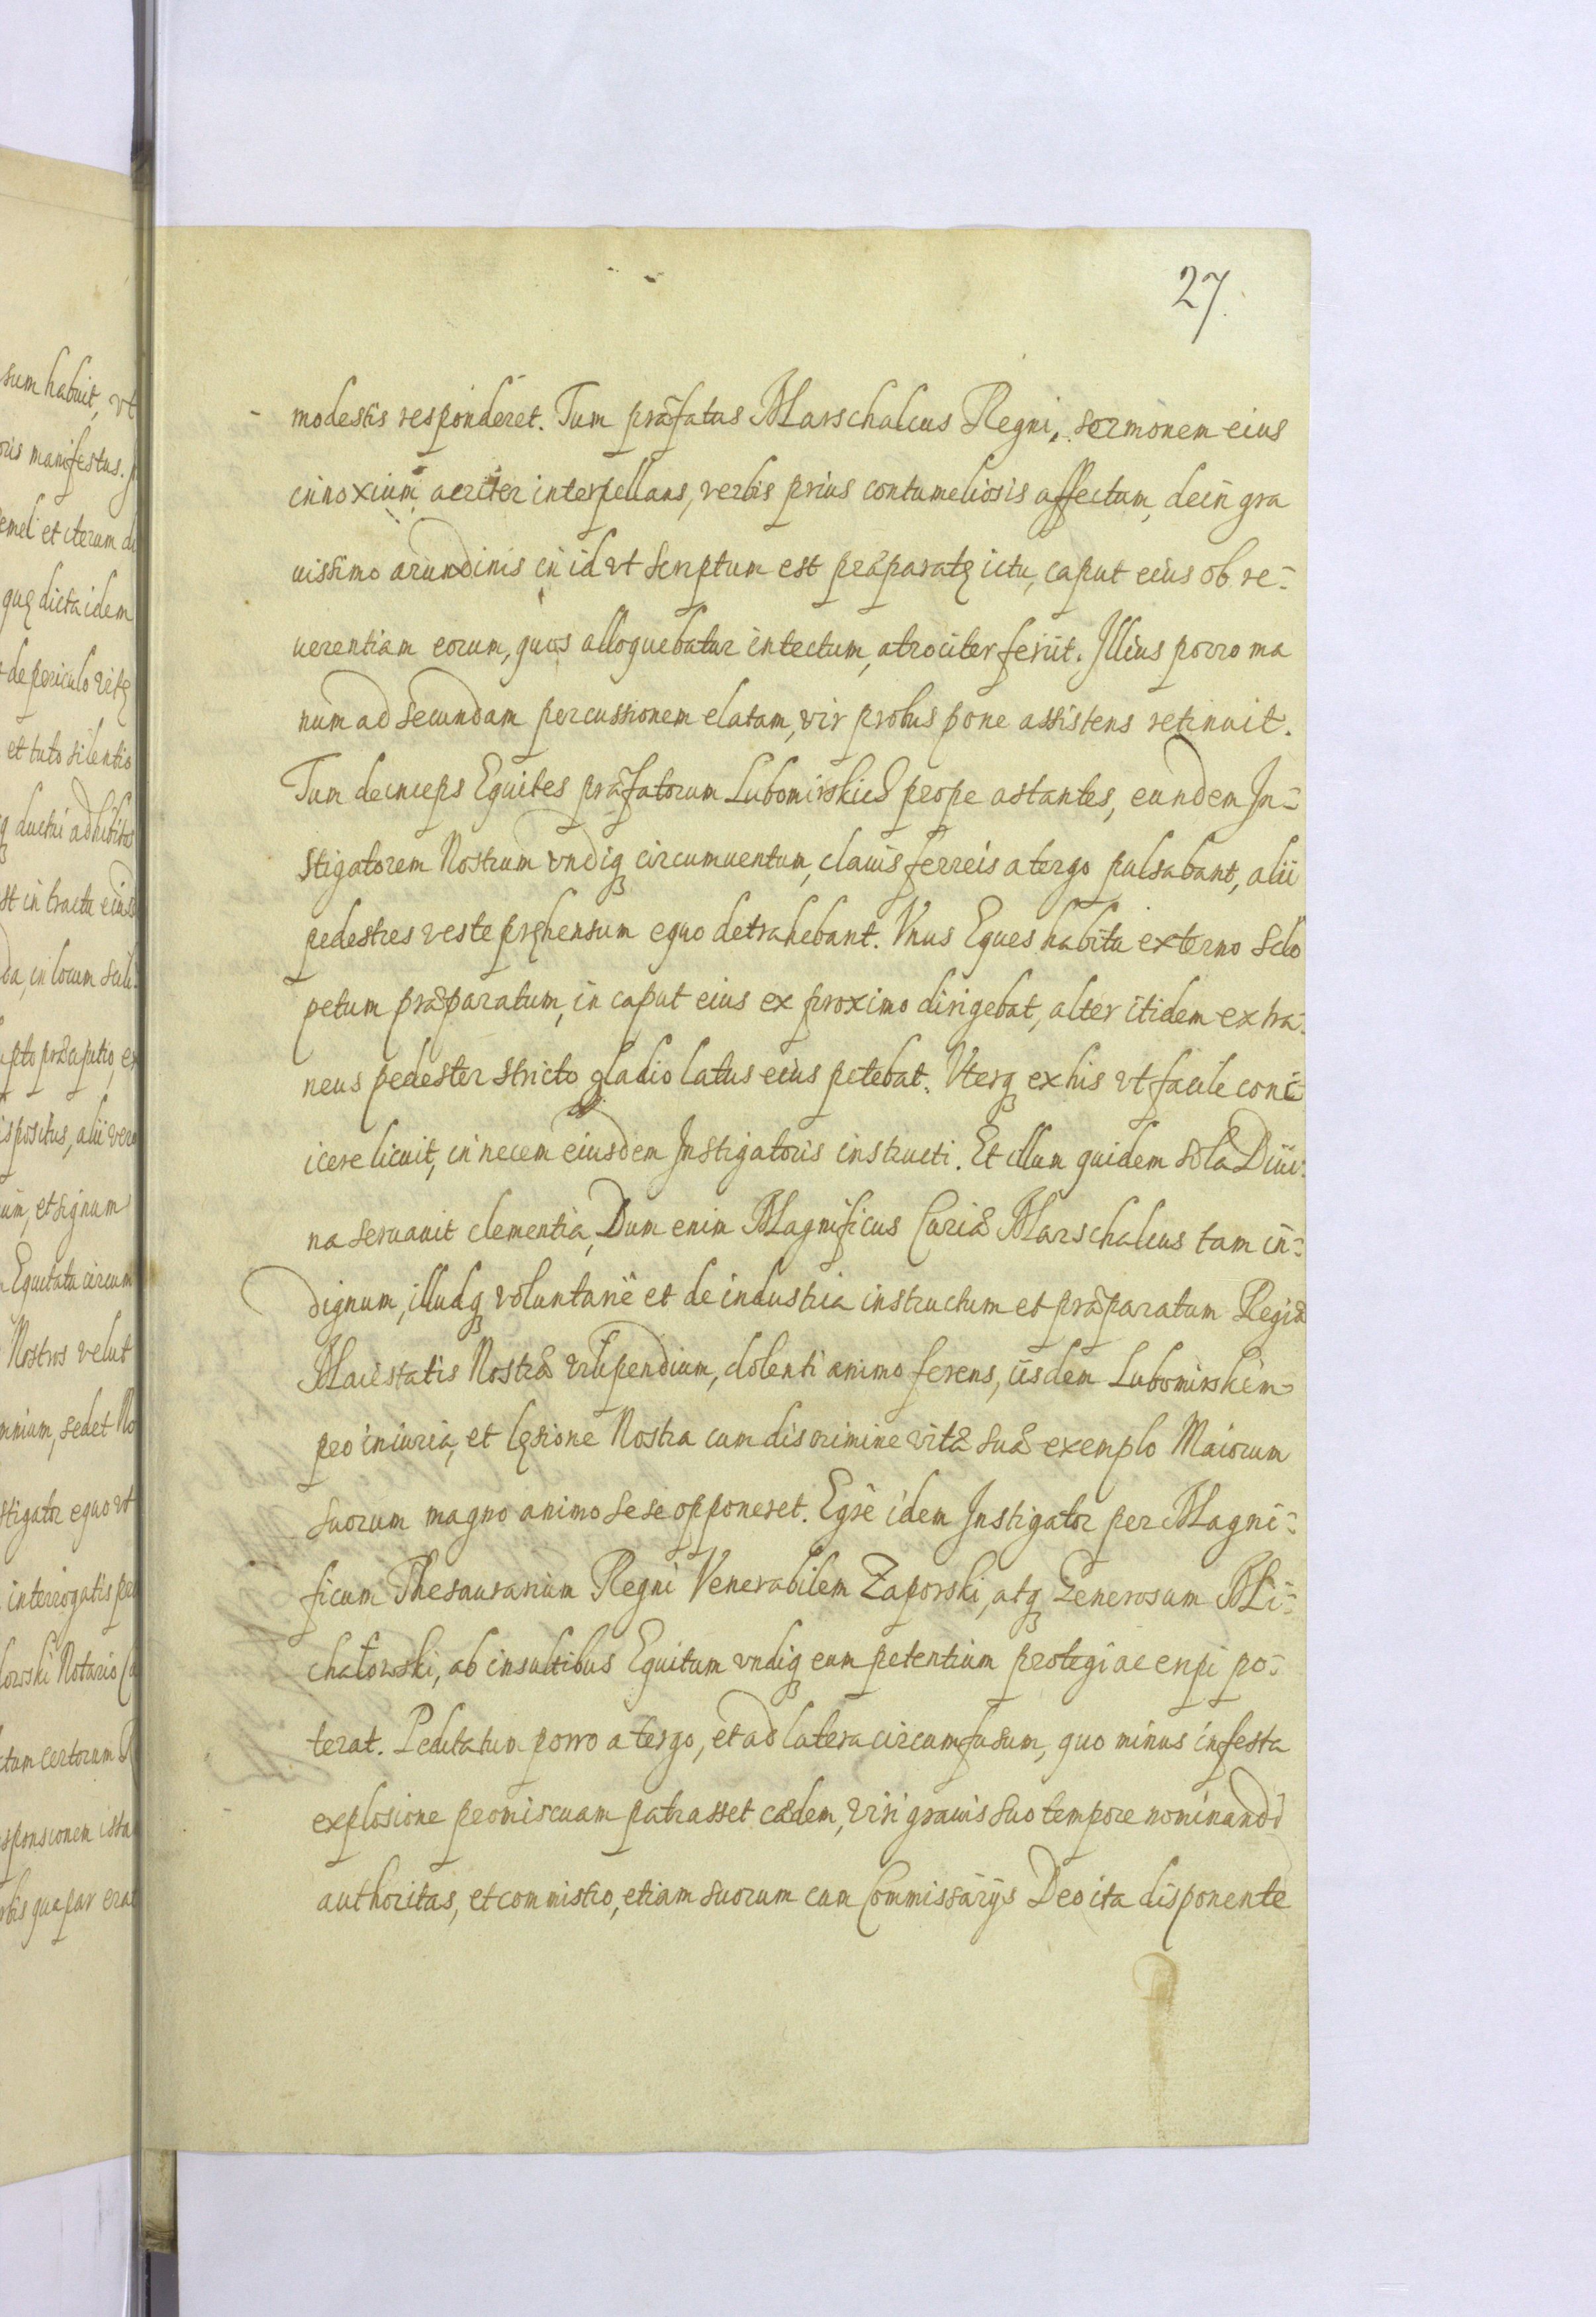 27
modestis responderet. Tum præfatus Marschalcus Regni, sermonem eius
innoxium acriter interpellans, verbis prius contumeliosis affectum, dein gra
uissimo arundinis in id vt scriptum est præparatę ictu, caput eius ob re-
uerentiam eorum, quos alloquebatur intectum, atrociter feriit. Illius porro ma
num ad secundam percussionem elatam, vir probus pone assistens retinuit.
Tum deinceps Equites præfatorum Lubomirskied prope astantes, eundem In-
stigatorem Nostrum vndiqꝫ circumuentum, clauis ferreis a tergo pulsabant, alii
pedestres veste pręhensum equo detrahebant. Vnus Eques habitu externo sclo
petum præparatum, in caput eius ex proximo dirigebat, alter itidem extra-
neus pedester stricto gladio latus eius petebat. Vterqꝫ ex his vt facile coni-
icere licuit, in necem eiusdem Instigatoris instructi. Et illum quidem sola Diui-
na seruauit clementia, Dum enim Magnificus Curiæ Marschalcus tam in-
dignum, illudqꝫ voluntariè et de industria instructum et præparatum Regiæ
Maiestatis Nostræ vilipendium, dolenti animo ferens, iisdem Lubomirskim
pro iniuria, et lęsione Nostra cum discrimine vitæ suæ exemplo Maiorum
suorum magno animo sese opponeret. Egrè idem Instigator per Magni-
ficum Thesaurarium Regni Venerabilem Zaporski, atqꝫ Generosum Mi-
chałowski, ab insultibus Equitum vndiqꝫ eum petentium protegi ac eripi po-
terat. Peditatum porro a tergo, et ad latera circumfusum, quo minus infesta
explosione promiscuam patrasset cædem, viri grauis suo tempore nominandi
authoritas, et commistio, etiam suorum cum Commissarijs Deo ita disponente
sum habuit, vt
oris manifestus.
emel et iterum di
quę dicta idem
de periculo vitę
et tuto silentio
ductui adhibitos
st in tractu eius
da, in locum
pto præcipitio, ex
ispositus, alii vero
um, et signum
Equitatu circum
Nostros velut
mnium, sedet No
stigator equo vt
interrogatis per
łowski Notario Ca
ctum certorum
sponsionem ista
bis qua par erat